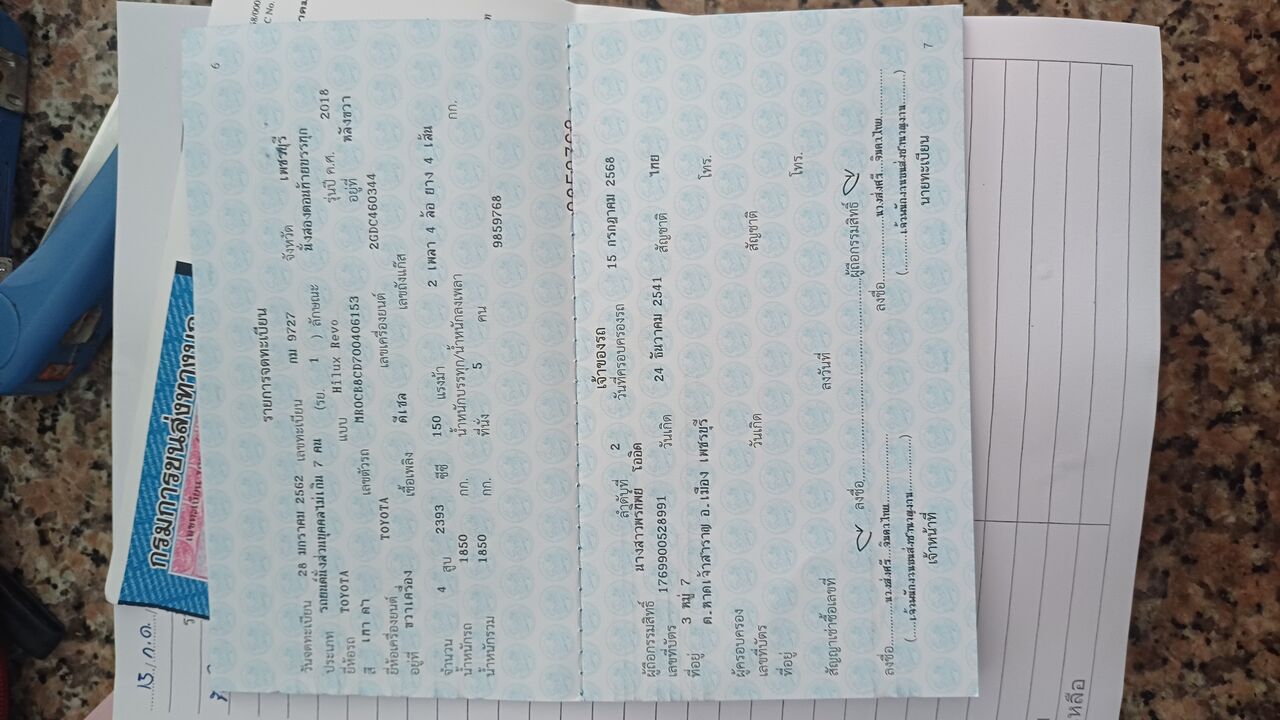 6
รายการจดทะเบียน
วันจดทะเบียน 28 มกราคม 2562 เลขทะเบียน กม 9727 จังหวัด เพชรบุรี
ประเภท รถยนต์นั่งส่วนบุคคลไม่เกิน 7 คน (รย. 1 ) ลักษณะ นั่งสองตอนท้ายบรรทุก
ยี่ห้อรถ TOYOTA แบบ Hilux Revo รุ่นปี ค.ศ. 2018
สี เทา ดำ เลขตัวรถ MR0CB8CD700406153 อยู่ที่ หลังขวา
ยี่ห้อเครื่องยนต์ TOYOTA เลขเครื่องยนต์ 2GDC460344
อยู่ที่ ขวาเครื่อง เชื้อเพลิง ดีเซล เลขถังแก๊ส
จำนวน 4 สูบ 2393 ซีซี 150 แรงม้า 2 เพลา 4 ล้อ ยาง 4 เส้น
น้ำหนักรถ 1850 กก. น้ำหนักบรรทุก/น้ำหนักลงเพลา กก.
น้ำหนักรวม 1850 กก. ที่นั่ง 5 คน 9859768
เจ้าของรถ
ลำดับที่ 2 วันที่ครอบครองรถ 15 กรกฎาคม 2568
ผู้ถือกรรมสิทธิ์ นางสาวพรทิพย์ โออิด
เลขที่บัตร 1769900528991 วันเกิด 24 ธันวาคม 2541 สัญชาติ ไทย
ที่อยู่ 3 หมู่ 7 โทร.
ต.หาดเจ้าสำราญ อ.เมือง เพชรบุรี
ผู้ครอบครอง
เลขที่บัตร วันเกิด สัญชาติ
ที่อยู่ โทร.
สัญญาเช่าซื้อเลขที่ ลงวันที่
ลงชื่อ ผู้ถือกรรมสิทธิ์
ลงชื่อ ลงชื่อ
เจ้าหน้าที่ นายทะเบียน
7
กรมการขนส่งทางบก
15 / ก.ค. /
หลือ